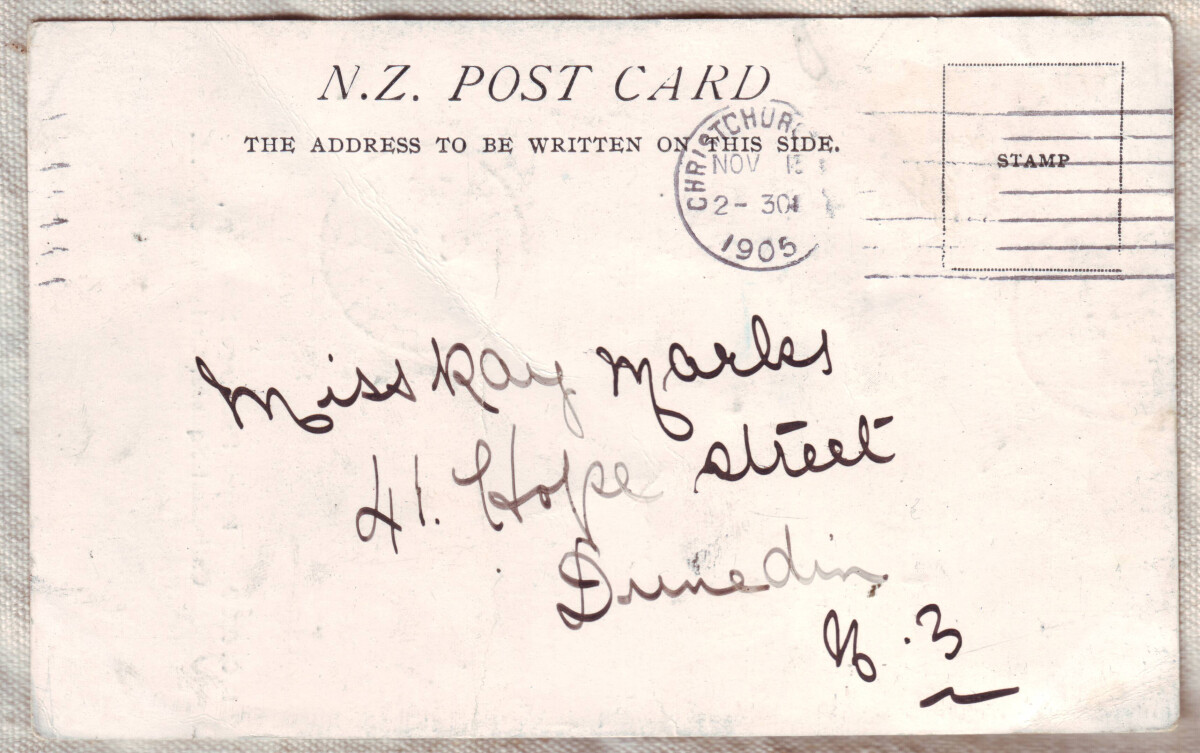 N.Z. POST CARD
THE ADDRESS TO BE WRITTEN ON THIS SIDE.
CHRISTCHURCH
NOV
2- 30
1905
STAMP
Miss Ray Marks
41. Hope street
Dunedin
N.Z